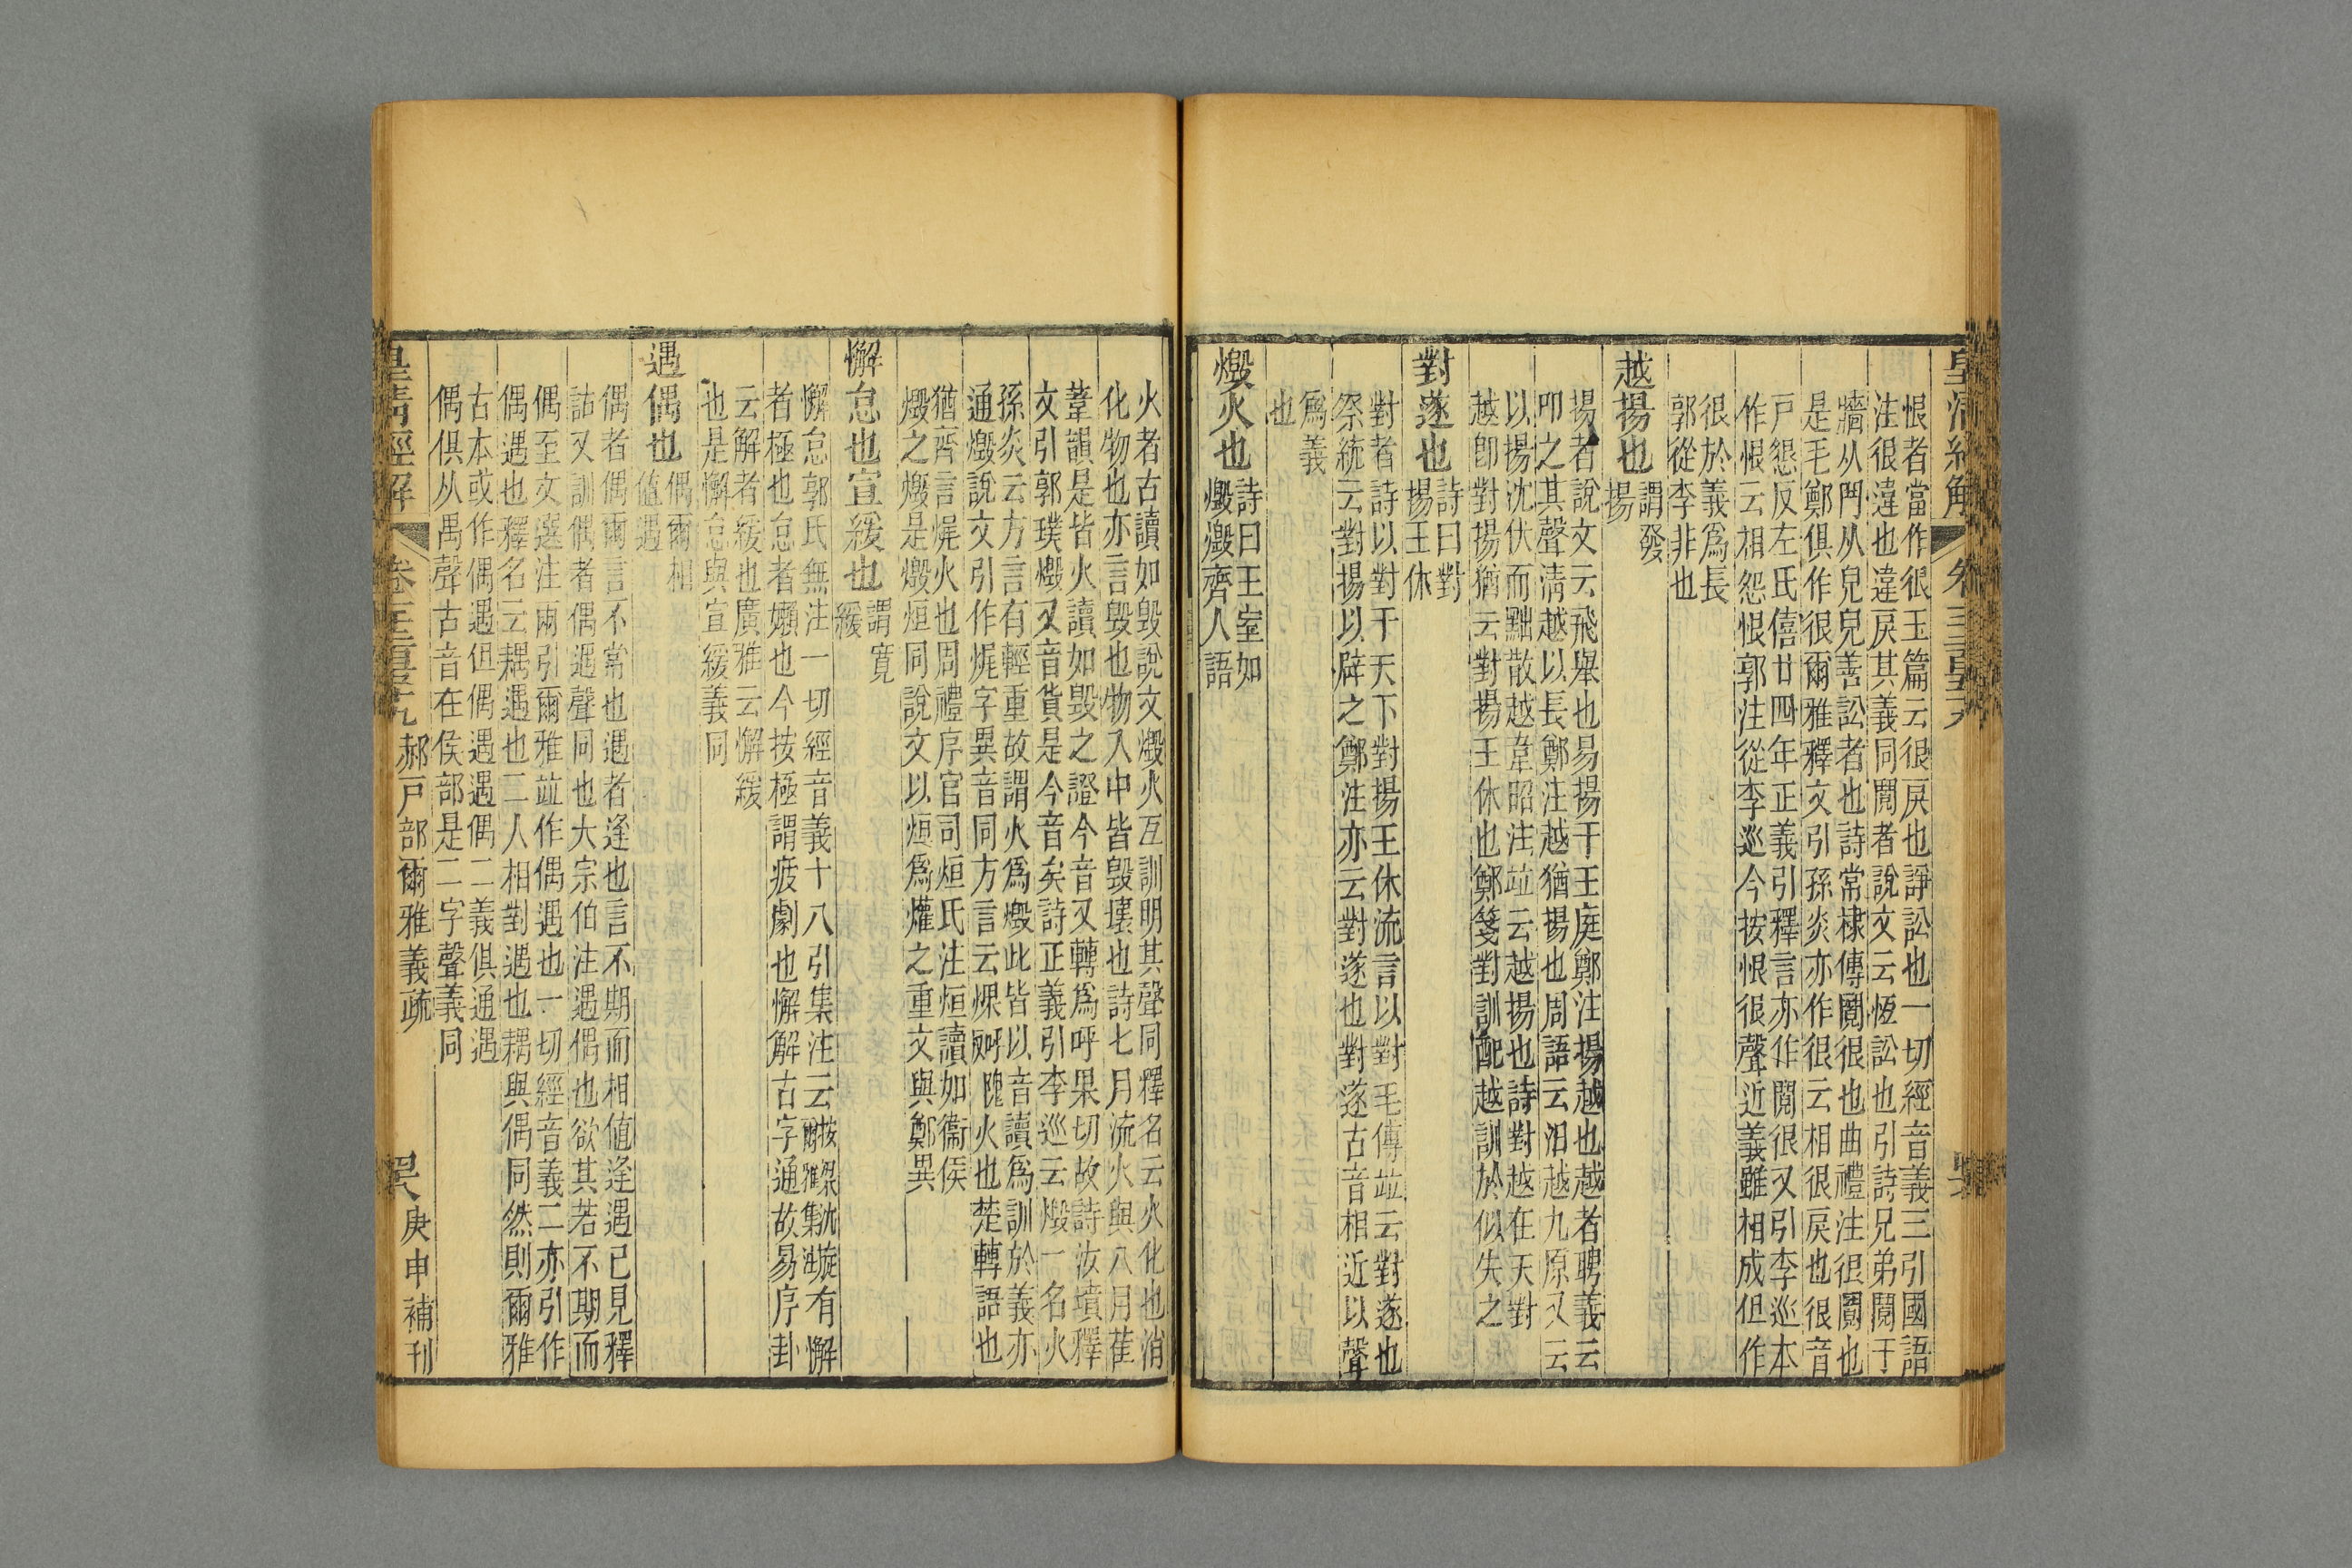 皇清經解
恨者當作很玉篇云很戾也諍訟也一切經音義三引國語
注很違也違戾其義同鬩者說文云恆訟也引詩兄弟鬩于
牆从鬥从兒兒善訟者也詩常棣傳鬩很也曲禮注很鬩也
是毛鄭俱作很爾雅釋文引孫炎亦作很云相很戾也很音
戸懇反左氏僖廿四年正義引釋言亦作鬩很又引李巡本
作恨云相怨恨郭注從李巡今按恨很聲近義雖相成但作
很於義爲長
郭從李非也
越揚也
謂發
揚
揚者說文云飛舉也易揚于王庭鄭注揚越也越者聘義云
叩之其聲淸越以長鄭注越猶揚也周語云汨越九原又云
以揚沈伏而黜散越韋昭注竝云越揚也詩對越在天對
越卽對揚猶云對揚王休也鄭箋對訓配越訓於似失之
對遂也
詩曰對
揚王休
對者詩以對于天下對揚王休流言以對毛傳竝云對遂也
祭統云對揚以辟之鄭注亦云對遂也對遂古音相近以聲
爲義
也
燬火也
詩曰王室如
燬燬齊人語
火者古讀如毀說文燬火互訓明其聲同釋名云火化也消
化物也亦言毀也物入中皆毀壞也詩七月流火與八月萑
葦韻是皆火讀如毀之證今音又轉爲呼果切故詩汝墳釋
文引郭璞燬又音貨是今音矣詩正義引李巡云燬一名火
孫炎云方言有輕重故謂火爲燬此皆以音讀爲訓於義亦
通燬說文引作㷄字異音同方言云煤㷄火也楚轉語也
猶齊言㷄火也周禮序官司烜氏注烜讀如衞侯
燬之燬是燬烜同說文以烜爲爟之重文與鄭異
懈怠也宣緩也
謂寛
緩
懈怠郭氏無注一切經音義十八引集注云按梁沈旋有爾雅集注懈
者極也怠者嬾也今按極謂疲劇也懈解古字通故易序卦
云解者緩也廣雅云懈緩
也是懈怠與宣緩義同
遇偶也
偶爾相
值遇
偶者偶爾言不常也遇者逢也言不期而相值逢遇已見釋
詁又訓偶者偶遇聲同也大宗伯注遇偶也欲其若不期而
偶至文選注兩引爾雅竝作偶遇也一切經音義二亦引作
偶遇也釋名云耦遇也二人相對遇也耦與偶同然則爾雅
古本或作偶遇但偶遇遇偶二義俱通遇
偶俱从禺聲古音在侯部是二字聲義同
皇淸經解
郝戸部爾雅義疏
庚申補刊